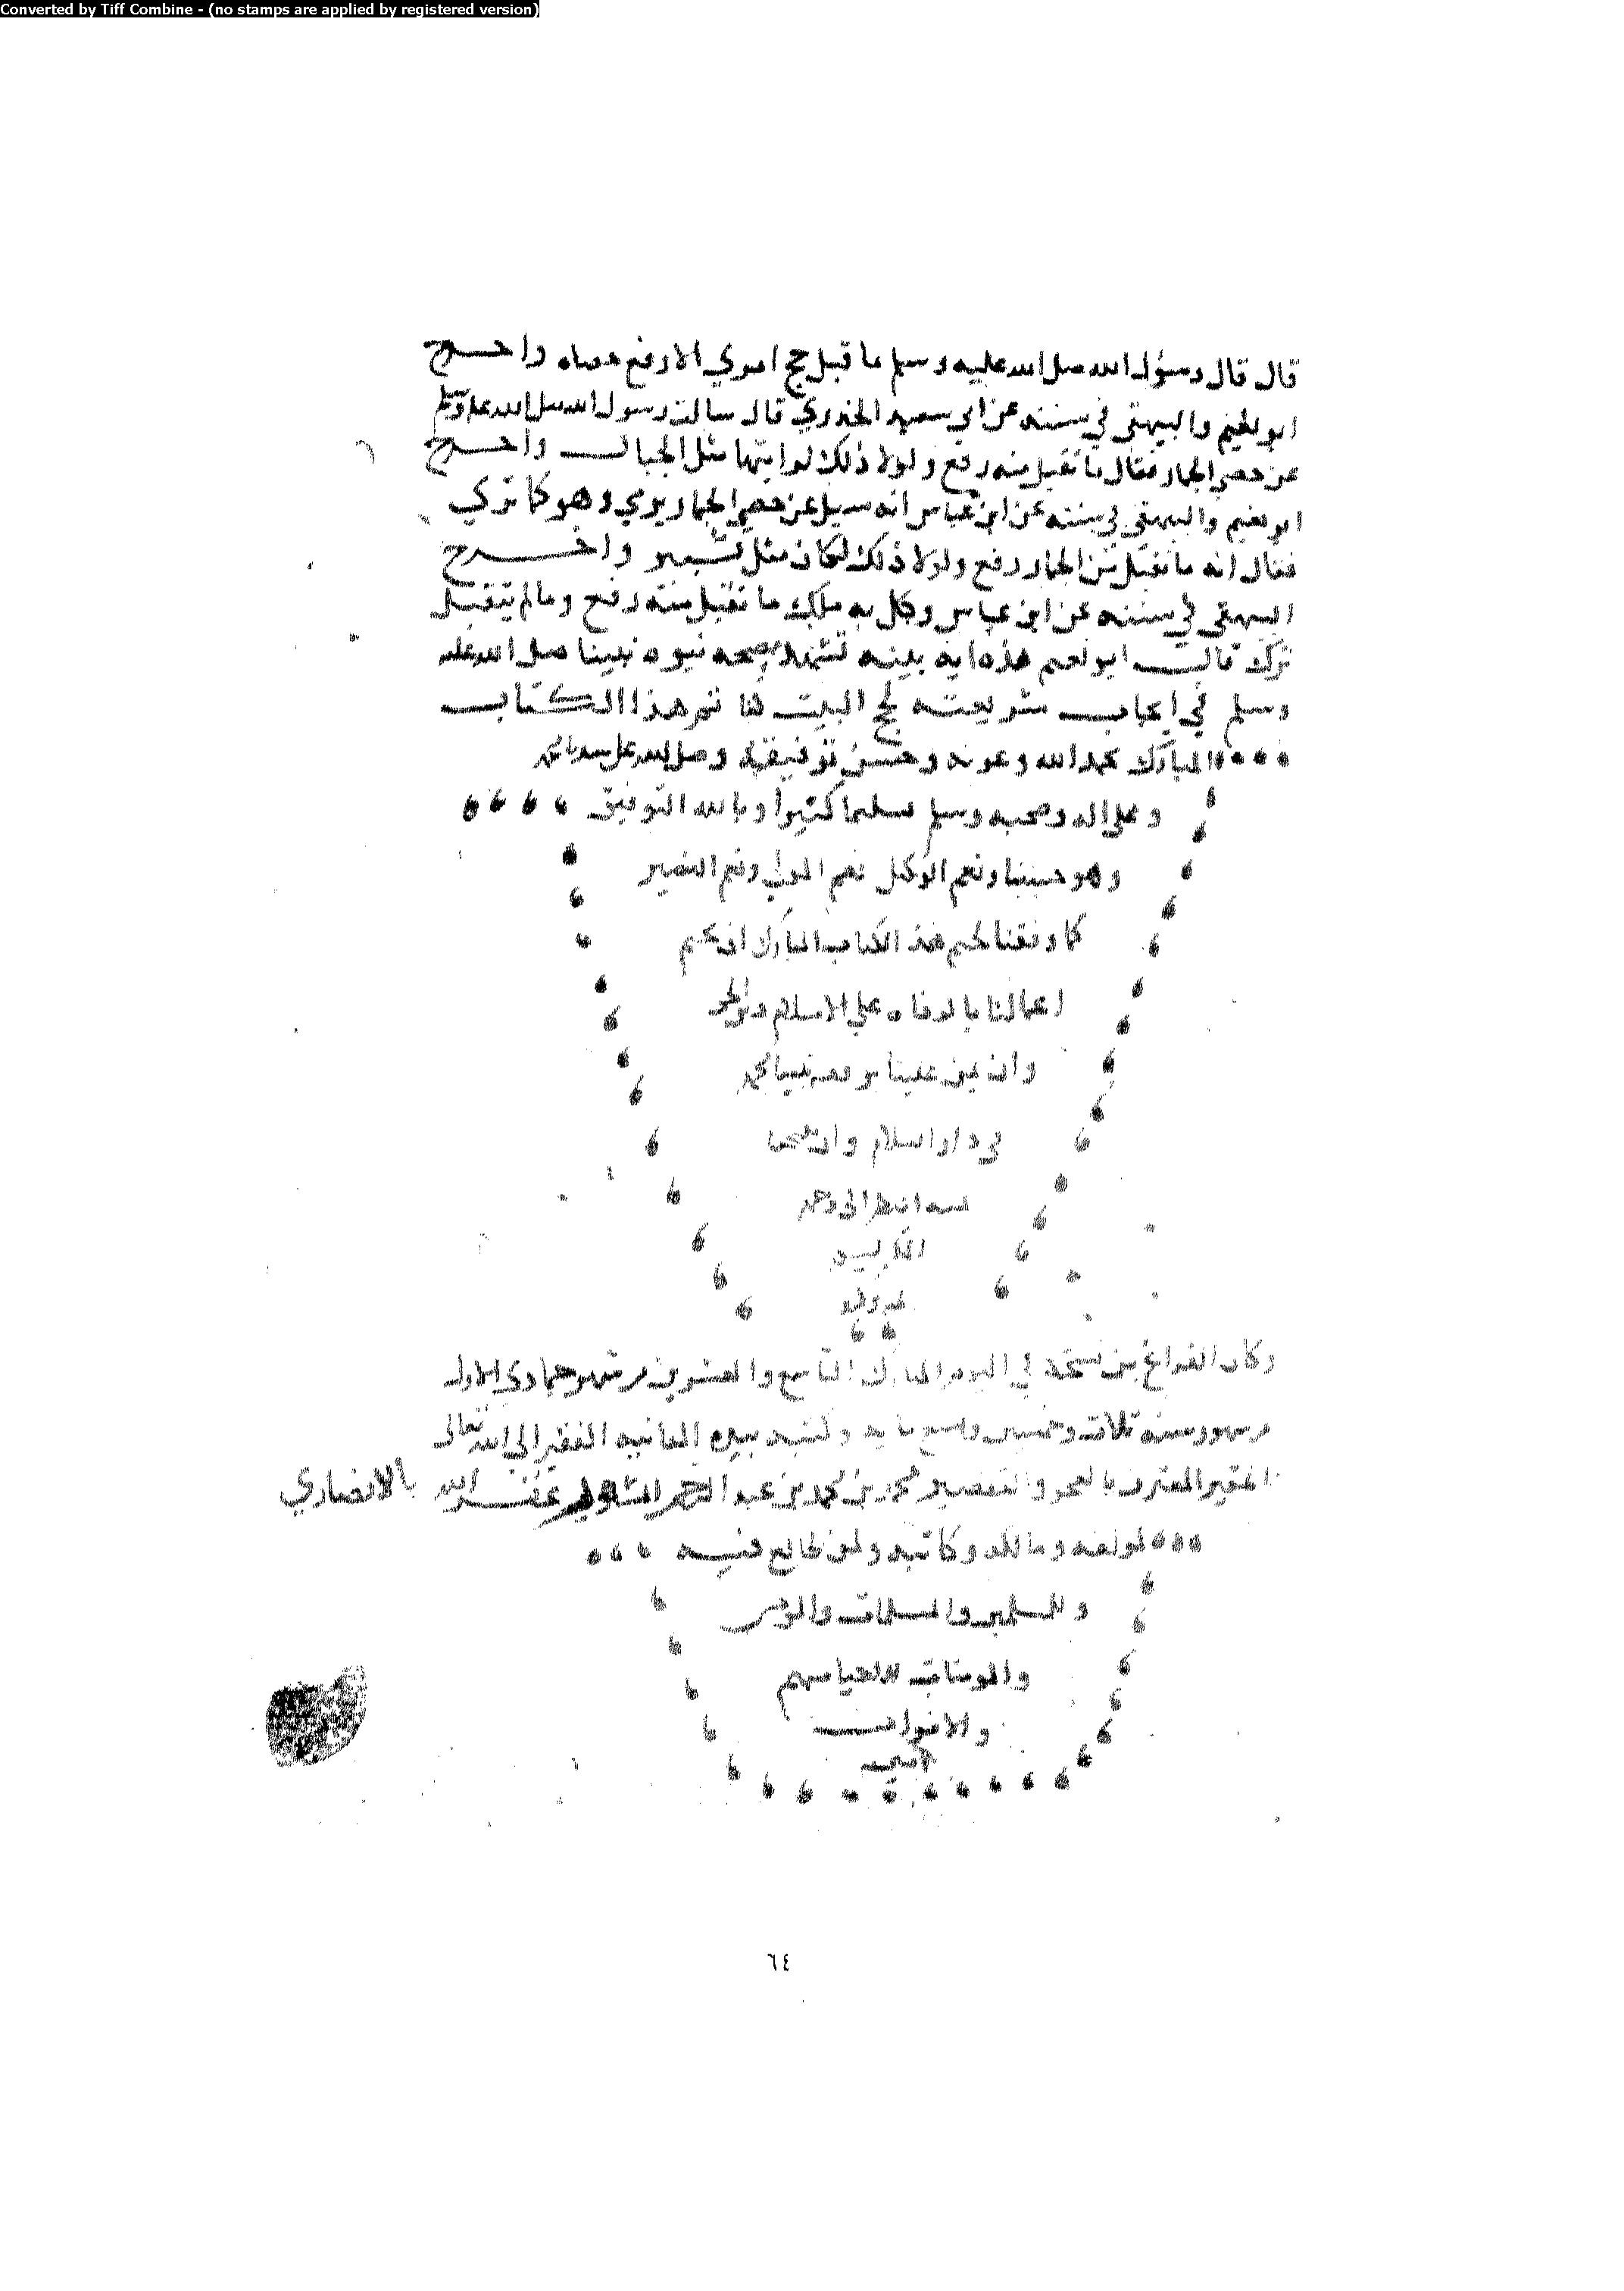 Converted by Tiff Combine - (no stamps are applied by registered version)
قال قال رسول الله صلى الله عليه وسلم ما قبل حج امري الا رفع حصاه واخرج
ابو نعيم والبيهقي في سننه عن ابي سعيد الخدري قال سالت رسول الله صلى الله عليه وسلم
عن حصى الجمار فقال ما تقبل منه رفع ولولا ذلك لرايتها مثل الجبال واخرج
ابو نعيم والبيهقي في سننه عن ابن عباس انه سيل عن حصى الجمار يرمي وهو كما تري
فقال انه ما تقبل من الجمار رفع ولولا ذلك لكان مثل ثبير واخرج
البيهقي في سننه عن ابن عباس وكل به ملك ما تقبل منه رفع وما لم يتقبل
ترك قال ابو نعيم هذه ايه بينه تشهد بصحه نبوه نبينا صلى الله عليه
وسلم في ايجاب شريعته لحج البيت هنا تم هذا الكتاب
المبارك بحمد الله وعونه وحسن توفيقه وصلى الله على سيدنا محمد
وعلى اله وصحبه وسلم تسليما كثيرا وبالله التوفيق
وهو حسبنا ونعم الوكيل نعم المولي ونعم النصير
كما وفقنا لختم هذا الكتاب المبارك ان يختم
اعمالنا بالوفاه علي الاسلام
وان يمن علينا نبينا محمد
في دار السلام وان
انظر الى وجهه
الكريم
وكان الفراغ من نسخه في اليوم المبارك التاسع والعشرين من شهر جمادي الاول
من شهور سنه ثلاث وخمسين وتسع مايه وكتبه بيده الفانيه الفقير الى الله تعالى
الحقير المعترف بالعجز والتقصير محمد بن محمد بن عبد الرحمن غفر الله الانصاري
لمولفه ومالكه وكاتبه ولمن طالع فيه
وللمسلمين والمسلمات والمومنين
والمومنات الاحيا منهم
والاموات
امين
٦٤